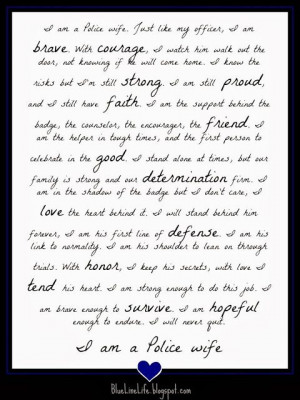 I am a Police wife. Just like my officer, I am
brave. With courage, I watch him walk out the
door, not knowing if he will come home. I know the
risks but I'm still strong. I am still proud,
and I still have faith. I am the support behind the
badge, the counselor, the encourager, the friend. I
am the helper in tough times, and the first person to
celebrate in the good. I stand alone at times, but our
family is strong and our determination firm. I
am in the shadow of the badge but I don't care, I
love the heart behind it. I will stand behind him
forever, I am his first line of defense. I am his
link to normality. I am his shoulder to lean on through
trials. With honor, I keep his secrets, with love I
tend his heart. I am strong enough to do this job. I
am brave enough to survive. I am hopeful
enough to endure. I will never quit.
I am a Police wife
BlueLineLife.blogspot.com